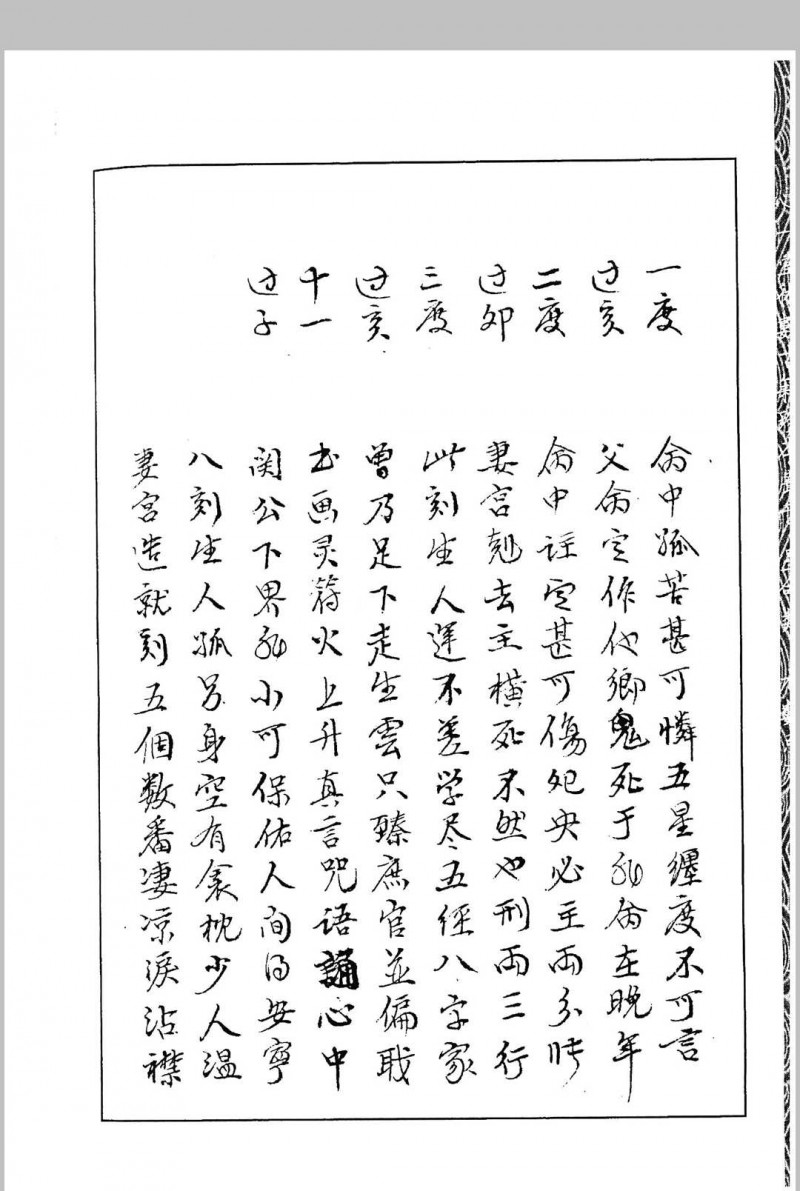 一度
过亥
二度
过卯
三度
过亥
十一
过子
命中孤苦甚可憐五星缠度不可言
父命定作他鄉鬼死于非命在晚年
命中註定甚可傷妃央必主两分张
妻宫剋去主横死不然也刑両三行
此刻生人運不差学尽五經八字家
曾乃足下走生雲只臻庶官並偏戝
书画灵符火上升真言咒语誦心中
関公下界非小可保佑人间得安寧
八刻生人孤另身空有衾枕少人温
妻宫造就刻五個数番凄凉淚沾襟